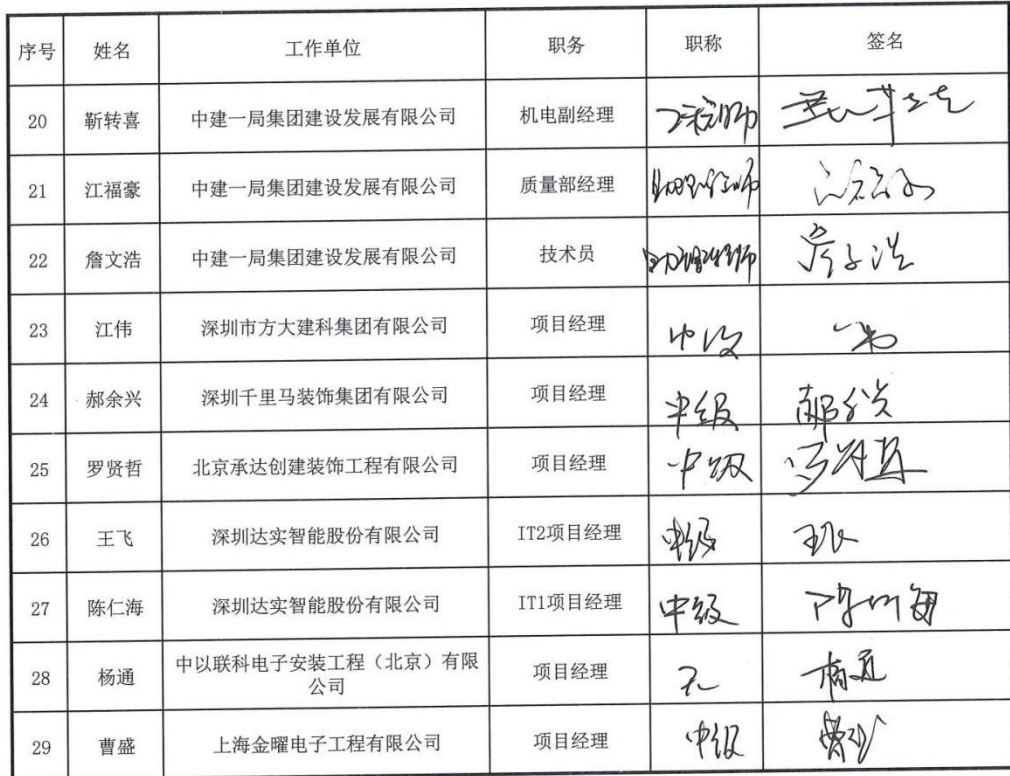 序号 姓名 工作单位 职务 职称 签名
20 靳转喜 中建一局集团建设发展有限公司 机电副经理 工程师
21 江福豪 中建一局集团建设发展有限公司 质量部经理 助理工程师
22 詹文浩 中建一局集团建设发展有限公司 技术员 助理工程师
23 江伟 深圳市方大建科集团有限公司 项目经理 中级
24 郝余兴 深圳千里马装饰集团有限公司 项目经理 中级
25 罗贤哲 北京承达创建装饰工程有限公司 项目经理 中级
26 王飞 深圳达实智能股份有限公司 IT2项目经理 中级 王飞
27 陈仁海 深圳达实智能股份有限公司 IT1项目经理 中级 陈仁海
28 杨通 中以联科电子安装工程（北京）有限
公司 项目经理 无 杨通
29 曹盛 上海金曜电子工程有限公司 项目经理 中级